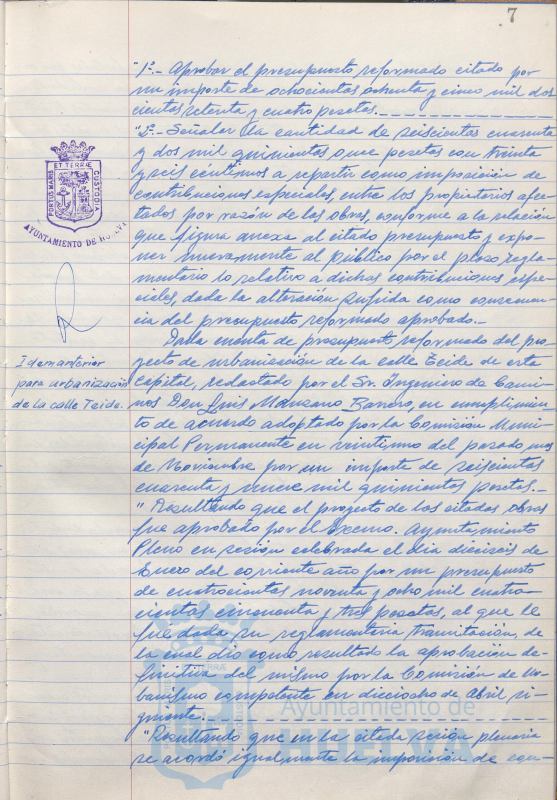 7
"1º.- Aprobar el presupuesto reformado citado por
un importe de ochocientas ochenta y cinco mil dos
cientas setenta y cuatro pesetas.
"5º.- Señalar la cantidad de seiscientas cuarenta
y dos mil quinientas once pesetas con treinta
y seis centimos a repartir como imposición de
contribuciones especiales, entre los propietarios afec-
tados por razón de las obras, conforme a la relación
que figura anexa al citado presupuesto y expo-
ner nuevamente al público por el plazo regla-
mentario lo relativo a dichas contribuciones espe-
ciales, dada la alteración sufrida como consecuen-
cia del presupuesto reformado aprobado.-
Dada cuenta de presupuesto reformado del pro-
yecto de urbanización de la calle Teide de esta
capital, redactado por el Sr. Ingeniero de Cami-
nos Don Luis Manzano Barrero, en cumplimien-
to de acuerdo adoptado por la Comisión Muni-
cipal Permanente en veintiuno del pasado mes
de Noviembre por un importe de seiscientas
cuarenta y nueve mil quinientas pesetas.-
"Resultando que el proyecto de las citadas obras
fue aprobado por el Excmo. Ayuntamiento
Pleno en sesión celebrada el dia dieciseis de
Enero del corriente año por un presupuesto
de cuatrocientas noventa y ocho mil cuatro-
cientas cincuenta y tres pesetas, al que le
fue dada su reglamentaria tramitación, de
la cual dio como resultado la aprobación de-
finitiva del mismo por la Comisión de Ur-
banismo competente en dieciocho de Abril si-
guiente.
"Resultando que en la citada sesión plenaria
se acordó igualmente la imposición de con-
PORTUS MARIS ET TERRAE CUSTODIA
AYUNTAMIENTO DE HUELVA
Idem anterior
para urbanización
de la calle Teide.
Ayuntamiento de
HUELVA